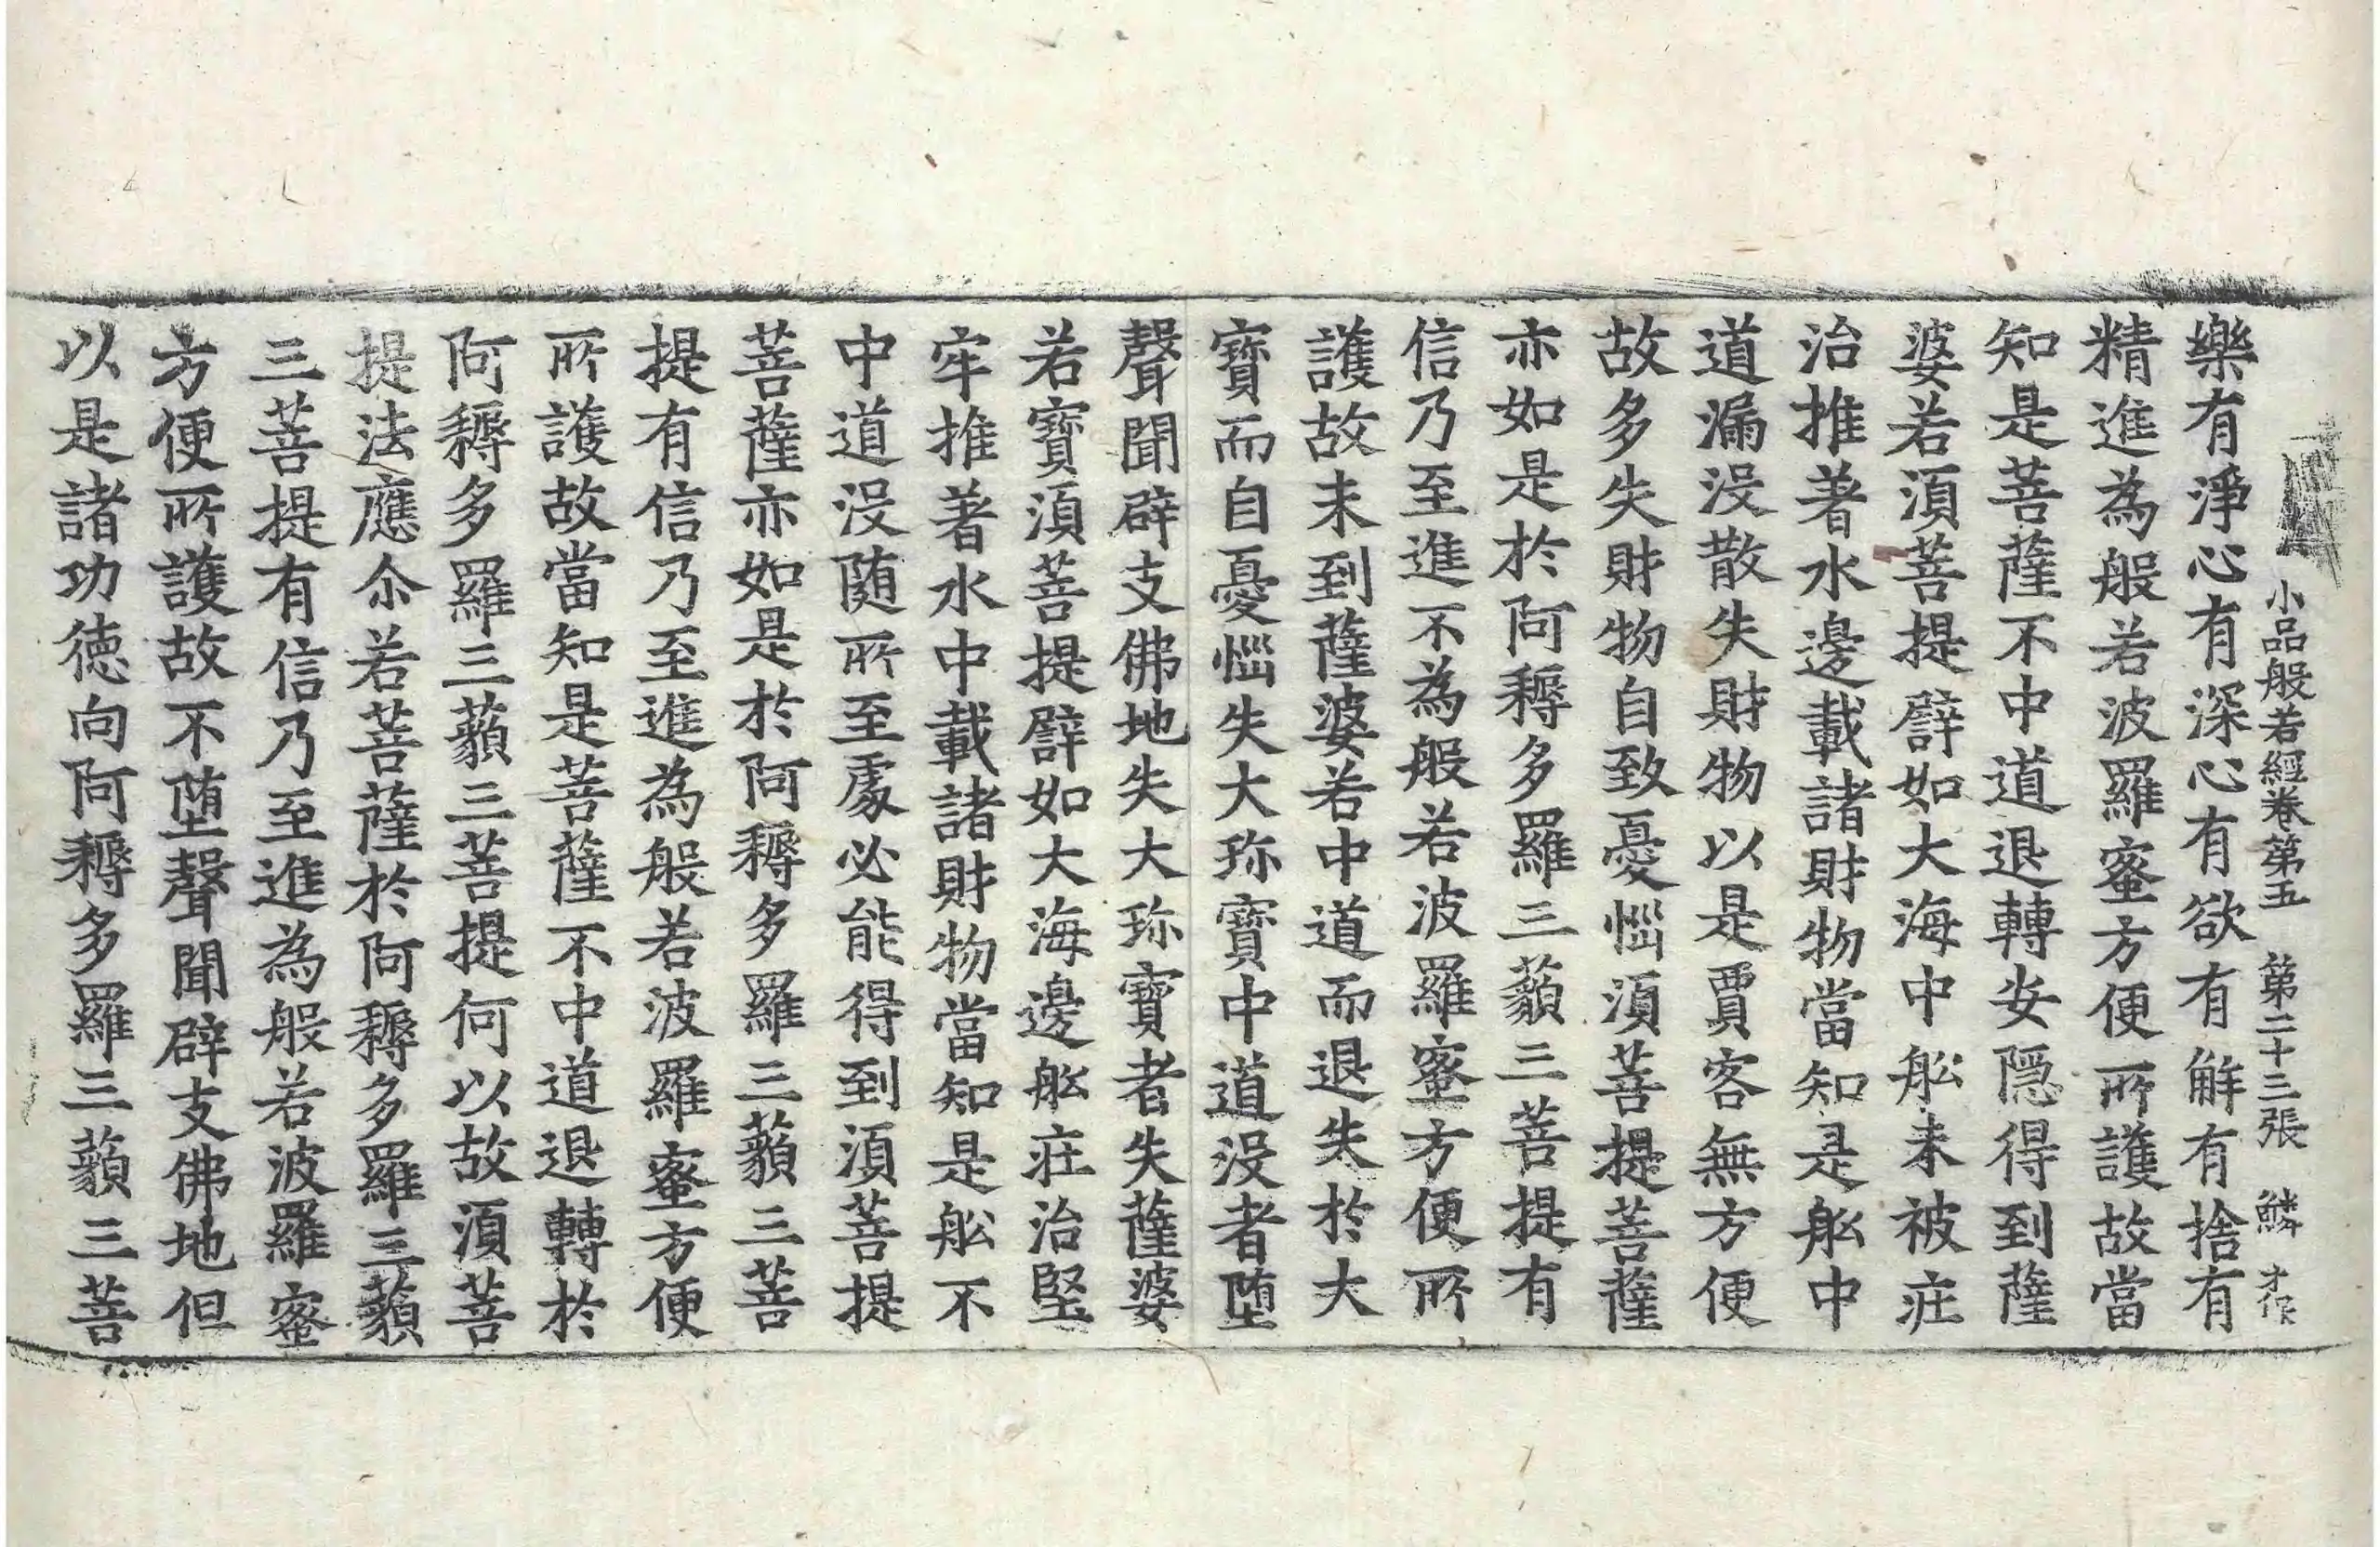 小品般若經卷第五　第二十三張　鱗　才作
樂有淨心有深心有欲有解有捨有
精進為般若波羅蜜方便所護故當
知是菩薩不中道退轉安隱得到薩
婆若湏菩提譬如大海中舩未被莊
治推著水邊載諸財物當知是舩中
道漏沒散失財物以是賈客無方便
故多失財物自致憂惱湏菩提菩薩
亦如是於阿耨多羅三藐三菩提有
信乃至進不為般若波羅蜜方便所
護故未到薩婆若中道而退失於大
寶而自憂惱失大珎寶中道沒者墮
聲聞辟支佛地失大珎寶者失薩婆
若寶湏菩提譬如大海邊舩莊治堅
牢推著水中載諸財物當知是舩不
中道沒随所至處必能得到湏菩提
菩薩亦如是於阿耨多羅三藐三菩
提有信乃至進為般若波羅蜜方便
所護故當知是菩薩不中道退轉於
阿耨多羅三藐三菩提何以故湏菩
提法應尒若菩薩於阿耨多羅三藐
三菩提有信乃至進為般若波羅蜜
方便所護故不墮聲聞辟支佛地但
以是諸功徳向阿耨多羅三藐三菩